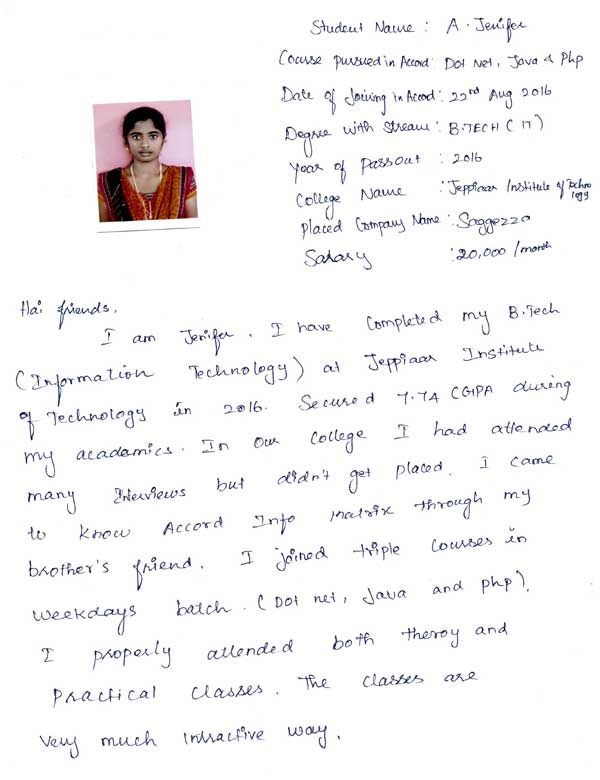 Student Name : A. Jenifer
Course pursued in Accord: Dot Net, Java & Php
Date of Joining in Accord: 22nd Aug 2016
Degree with Stream : B.TECH (IT)
Year of Passout : 2016
College Name : Jeppiaar Institute of Technology
Placed Company Name : Saggezza
Salary : 20,000 /month
Hai friends,
I am Jenifer. I have completed my B.Tech
(Information Technology) at Jeppiaar Institute
of Technology in 2016. Secured 7.74 CGPA during
my acadamics. In our college I had attended
many Interviews but didn't get placed. I came
to know Accord Info Matrix through my
brother's friend. I joined triple courses in
weekdays batch. (Dot net, Java and php).
I properly attended both theroy and
Practical classes. The classes are
very much intractive way.